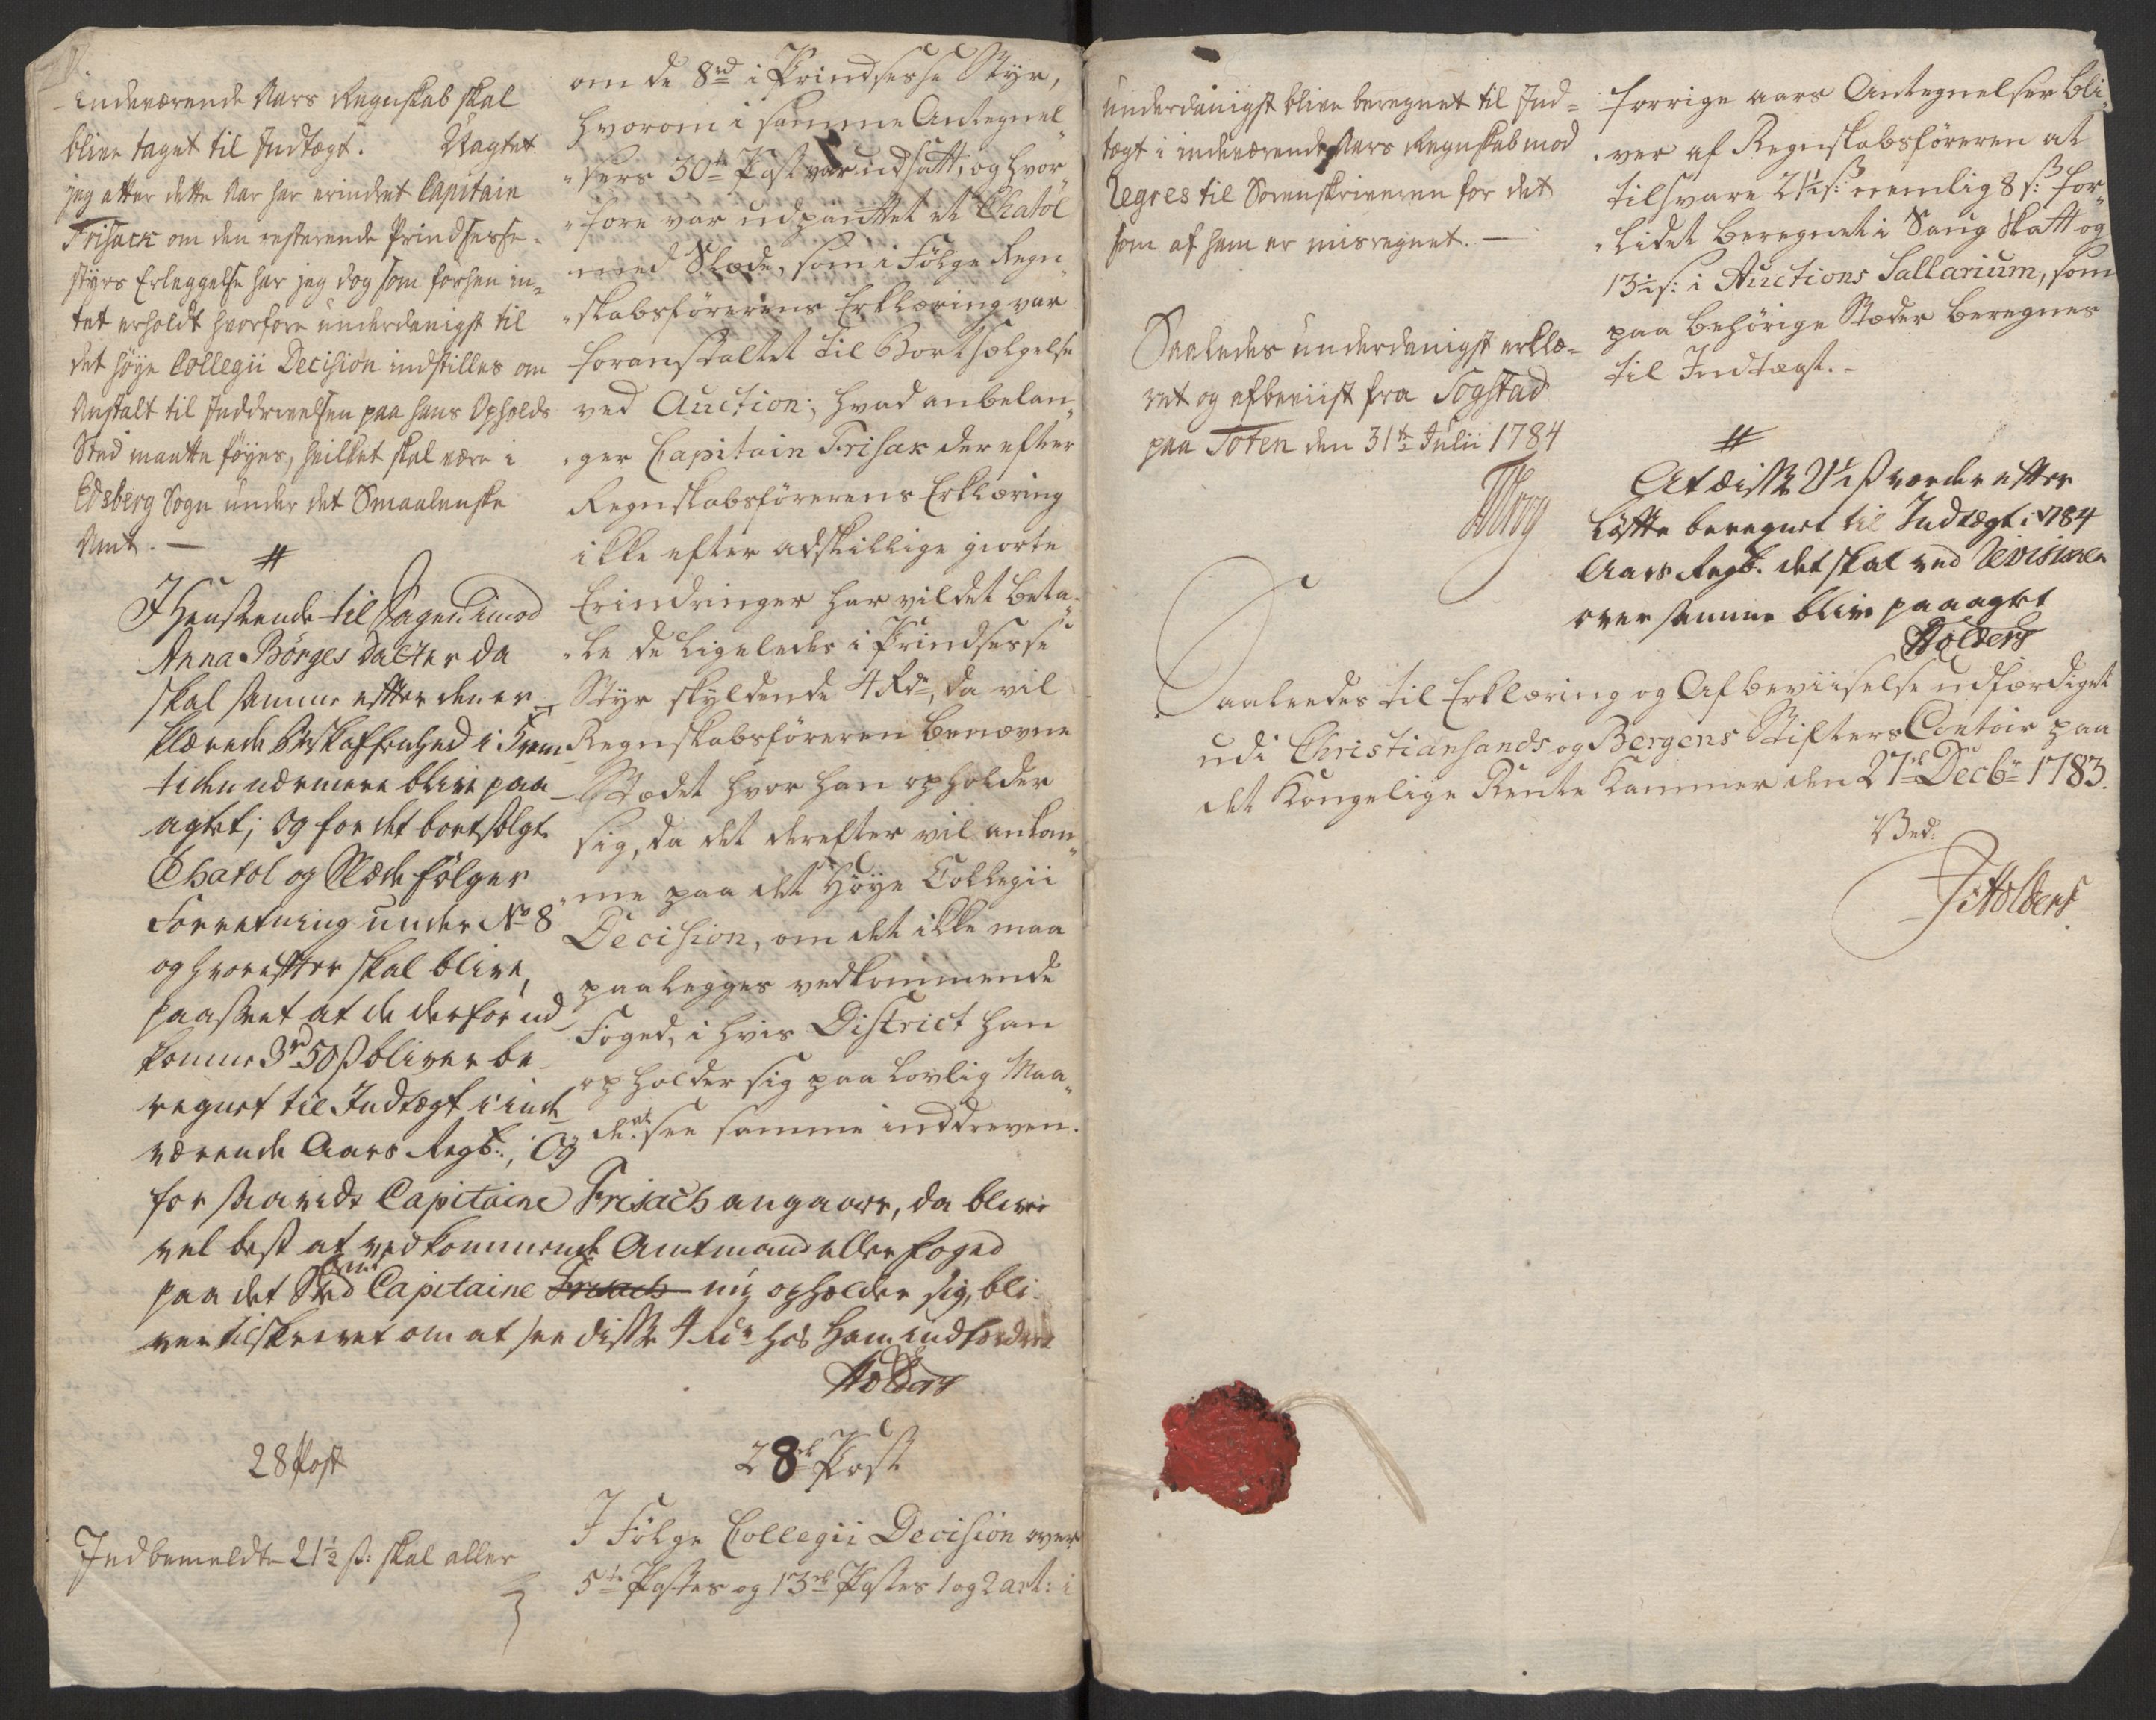 indeværende Aars Regnskab skal
blive taget til Indtægt. Uagtet
jeg atter dette Aar har erindret Capitain
Frisack om den resterende Prindsesse-
styrs Erleggelse har jeg dog som forhen in-
tet erholdt hvorfore underdanigst til
det høye Collegii Decision indstilles om
Anstalt til Inddrivelsen paa hans Opholds
Sted maatte føyes, hvilket skal være i
Edsberg Sogn under det Smaalenske
Amt. —
#
I Henseende til Sagen imod
Anna Børges Datter da
skal samme efter den er-
klærede Beskaffenhed i Frem-
tiden nærmere blive paa-
agtet; Og for det bortsolgte
Chatol og Slæde følger
Forretning under No 8
og hvorefter skal blive
paaseet at de derfor ud-
komne 3rd 50 s bliver be-
regnet til Indtægt i inde-
værende Aars Regsb:, Og
for saavidt Capitaine Frisach angaaer, da bliver
vel best at vedkommende Amtmand eller Foged
paa det Sted Capitaine Frisach nu opholder sig, bli-
ver tilskrevet om at see disse 4 Rdr hos ham indfordret
Holdert
28 Post
Indbemeldte 21½ s: skal aller
om de 8rd i Prindsesse Styr,
hvorom i samme Antegnel-
sers 30te Post var udsatt, og hvor-
fore var udpanttet et Chatol
med Slæde, som i Følge Regn-
skabsførerens Erklæring var
foranstaltet til Bortsælgelse
ved Auction; hvad anbelan-
ger Capitain Frisak der efter
Regnskabsførerens Erklæring
ikke efter adskillige giorte
Erindringer har vildet beta-
le de ligeledes i Prindsesse
Styr skyldende 4 Rdr, da vil
Regnskabsføreren benævne
Stædet hvor han opholder
sig, da det derefter vil ankom-
me paa det Høye Collegii
Decision, om det ikke maa
paalegges vedkommende
Foged, i hvis District han
opholder sig paa lovlig Maa-
de at see samme inddreven.
28de Post
I Følge Collegii Decision over
5te Postes og 13de Postes 1 og 2 art: i
underdanigst blive beregnet til Ind-
tægt i indeværende Aars Regnskab mod
Regres til Sorenskriveren for det
som af ham er misregnet. —
Saaledes underdanigst erklæ-
ret og afbeviist fra Sogstad
paa Toten den 31te Julii 1784
forrige aars Antegnelser bli-
ver af Regnskabsføreren at
tilsvare 21½ s: nemlig 8 s: for
lidet beregnet i Saug Skatt og
13½ s: i Auctions Sallarium, som
paa behørige Stæder beregnes
til Indtægt. -
#
At disse 21½ s vorder efter
Løfte beregnet til Indtægt i 1784
Aars Regsb. det skal ved Revisionen
over samme blive paaagtet
Holdert
Saaleedes til Erklæring og Afbeviiselse udfærdiget
udi Christiansands og Bergens Stifters Contoir paa
det Kongelige Rente Kammer den 27de Decbr 1783.
Ved:
Holdert